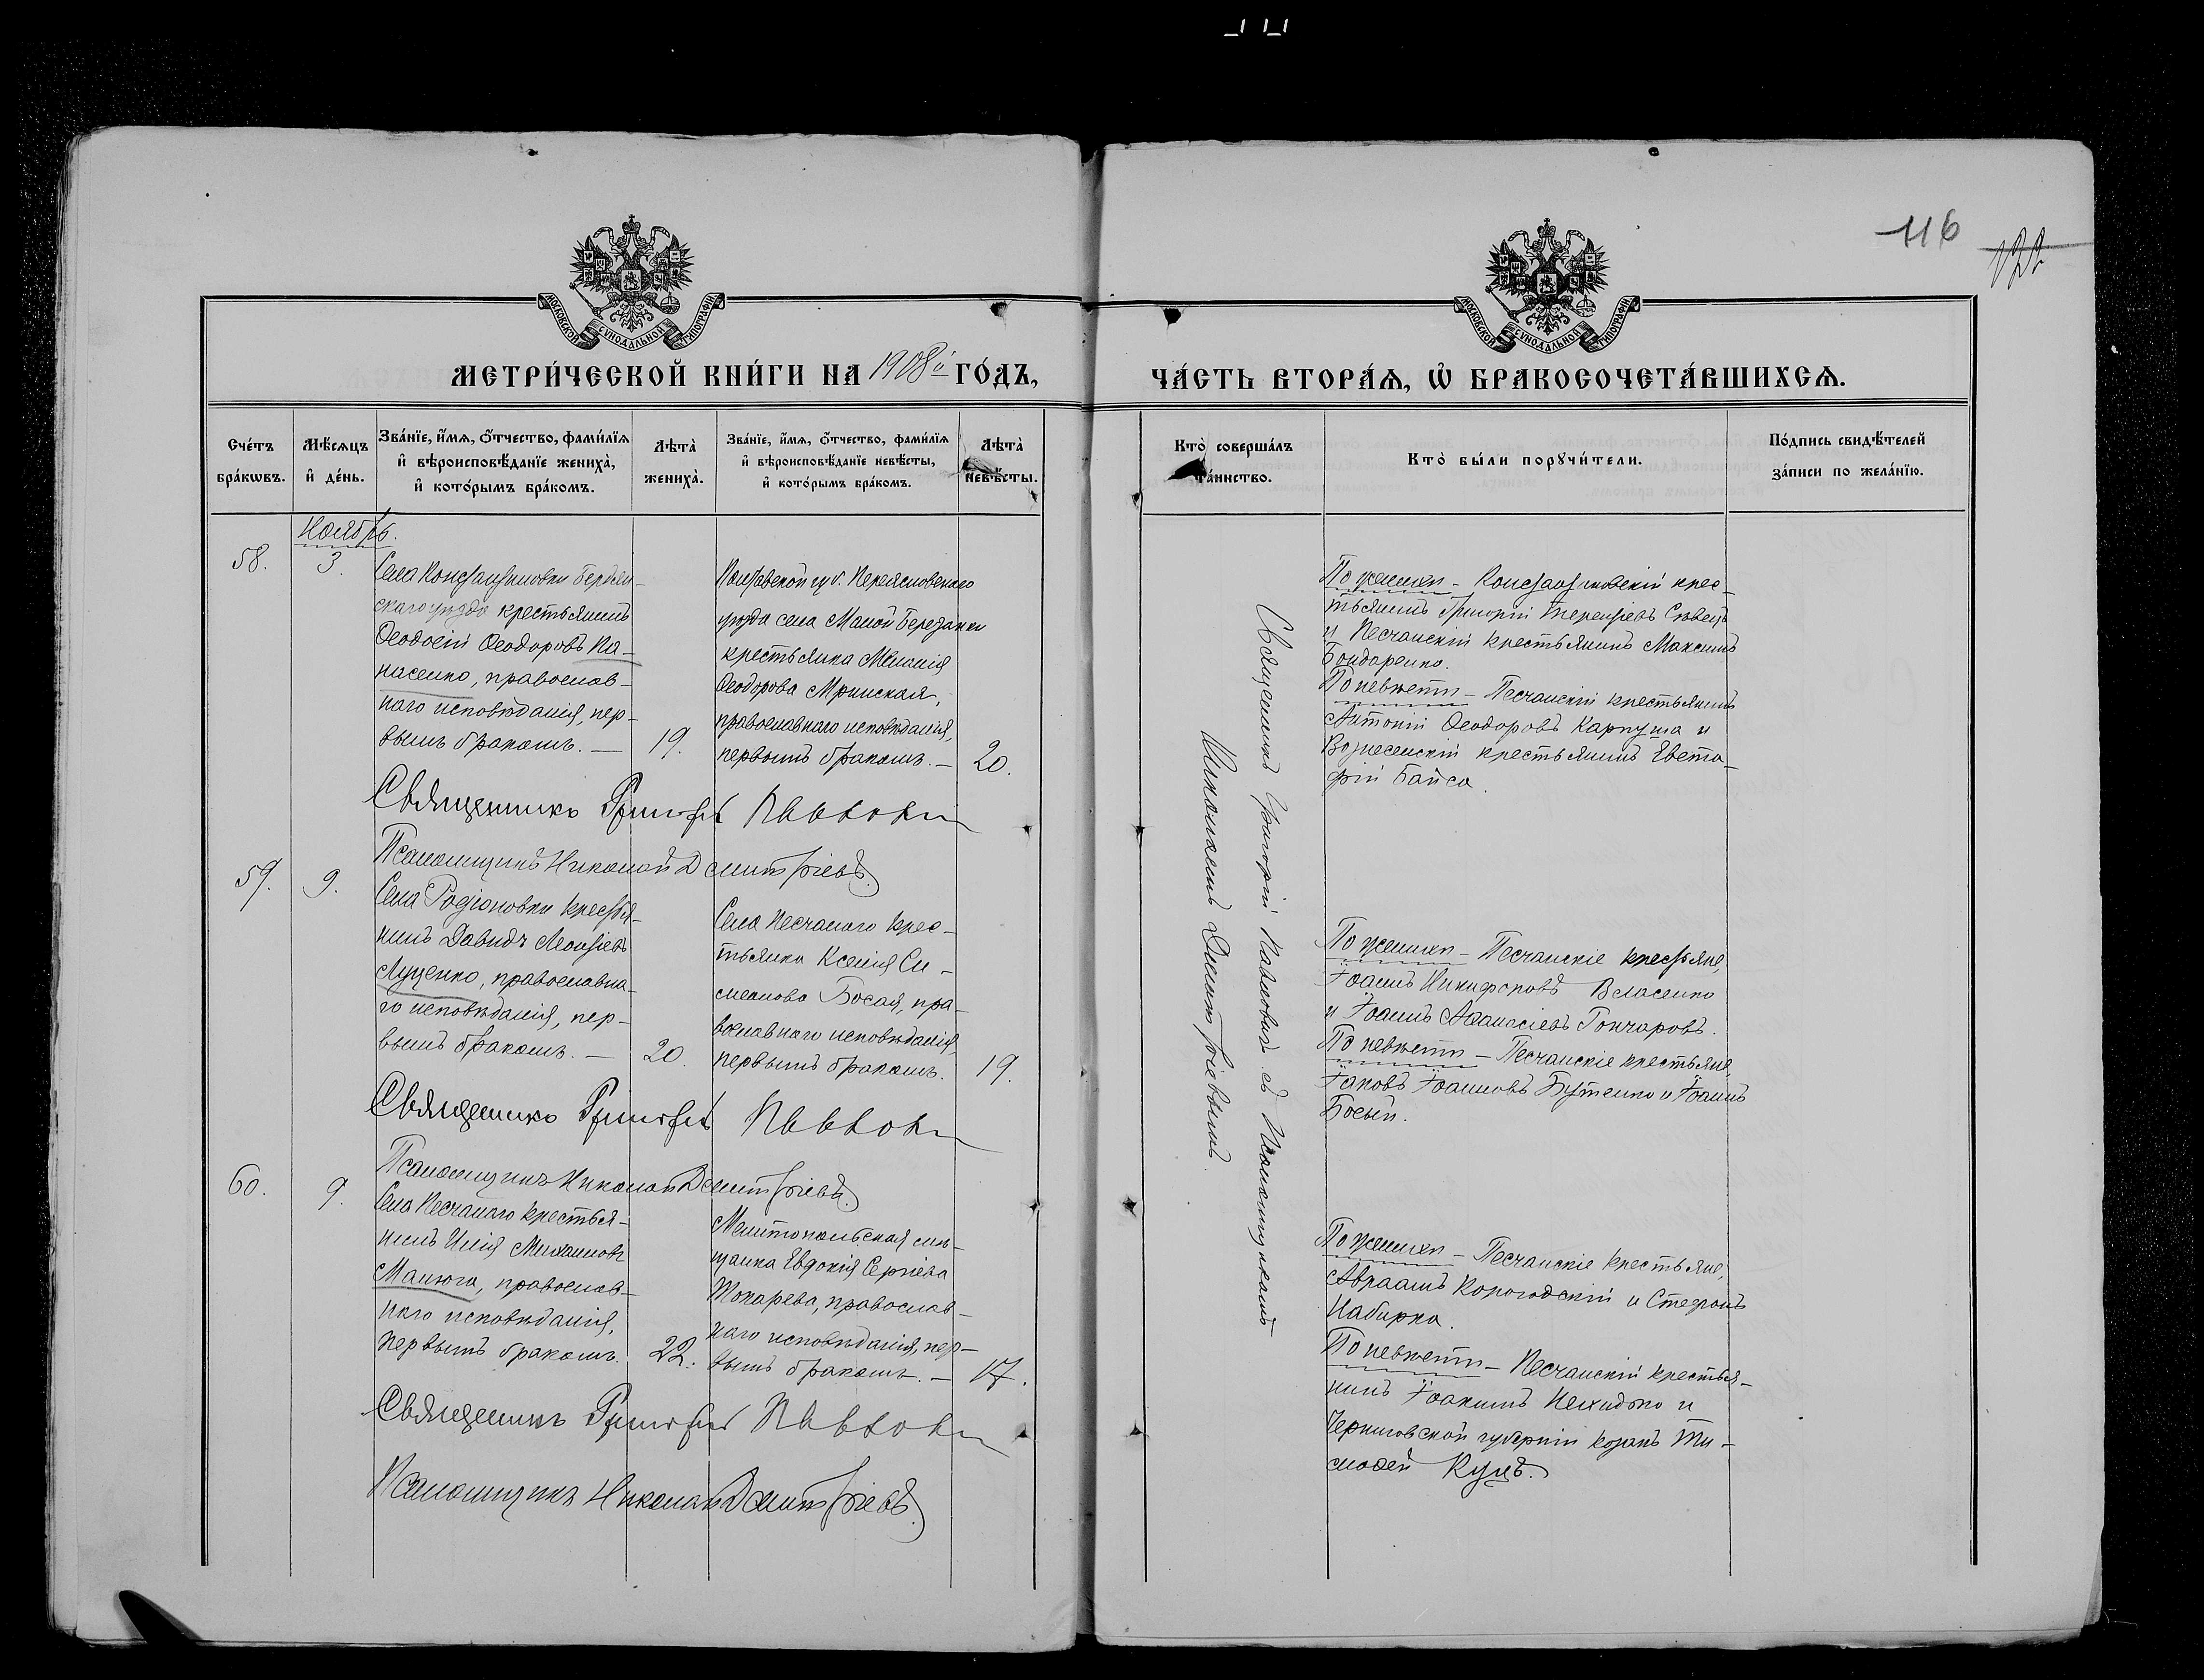 116
122
МОСКОВСКОЙ СѴНОДАЛЬНОЙ ТИПОГРАФІИ
МОСКОВСКОЙ СѴНОДАЛЬНОЙ ТИПОГРАФІИ
МЕТРИ́ЧЕСКОЙ КНИ́ГИ НА 1908й ГО́ДЪ,
ЧА́СТЬ ВТОРА́Ѧ, Ѽ БРАКОСОЧЕТА́ВШИХСѦ.
Сче́тъ
бра́кѡвъ.
Мѣ́сѧцъ
и҆ де́нь.
Зва́нїе, и҆́мѧ, ѻ҆́тчество, фами́лїѧ
и҆ вѣроисповѣ́данїе жениха̀,
и҆ кото́рымъ бра́комъ.
Лѣта̀
жениха̀.
Зва́нїе, и҆́мѧ, ѻ҆́тчество, фами́лїѧ
и҆ вѣроисповѣ́данїе невѣ́сты,
и҆ кото́рымъ бра́комъ.
Лѣта̀
невѣ́сты.
Кто̀ соверша́лъ
та́инство.
Кто̀ бы́ли порꙋчи́тели.
По́дпись свидѣ́телей
за́писи по жела́нїю.
Ноябрь.
58.
3.
Села Константиновки Бердян-
скаго уѣзда крестьянинъ
Ѳеодосій Ѳеодоровъ Па-
насенко, православ-
наго исповѣданія, пер-
вымъ бракомъ. —
19.
Полтавской губ. Переясловскаго
уѣзда села Малой Березанки
крестьянка Меланія
Ѳеодорова Мринская,
православнаго исповѣданія,
первымъ бракомъ. —
20.
По женихѣ — Константиновскій крес-
тьянинъ Григорій Терентіевъ
и Песчанскій крестьянинъ Максимъ
Бондаренко.
По невѣстѣ — Песчанскій крестьянинъ
Антоній Ѳеодоровъ Карпуша и
Вознесенскій крестьянинъ Евста-
фій Байса.
Священникъ Григорій Павловичъ
Псаломщикъ Николай Димитріевъ.
59.
9.
Села Родіоновки крестья-
нинъ Давидъ Леонтіевъ
Луценко, православна-
го исповѣданія, пер-
вымъ бракомъ. —
20.
Села Песчанаго крес-
тьянка Ксенія Си-
меонова Босая, пра-
вославнаго исповѣданія,
первымъ бракомъ.
19.
По женихѣ — Песчанскіе крестьяне,
Іоаннъ Никифоровъ Власенко
и Іоаннъ Аѳанасіевъ Гончаровъ.
По невѣстѣ — Песчанскіе крестьяне,
Іаковъ Іоанновъ Бутенко и Іоаннъ
Босый.
Священникъ Григорій Павловичъ
Псаломщикъ Николай Димитріевъ.
60.
9.
Села Песчанаго крестья-
нинъ Илія Михаиловъ
Манюга, православ-
наго исповѣданія,
первымъ бракомъ.
22.
Мелитопольская мѣ-
щанка Евдокія Сергіева
Токарева, православ-
наго исповѣданія, пер-
вымъ бракомъ. —
17.
По женихѣ — Песчанскіе крестьяне,
Авраамъ Корогодскій и Стефанъ
Набирка.
По невѣстѣ — Песчанскій крестья-
нинъ Іоакимъ и
Черниговской губерніи козакъ Ти-
моѳей Куцъ.
Священникъ Григорій Павловичъ
Псаломщикъ Николай Димитріевъ.
Священникъ Григорій Павловичъ съ Псаломщикомъ
Николаемъ Димитріевымъ.